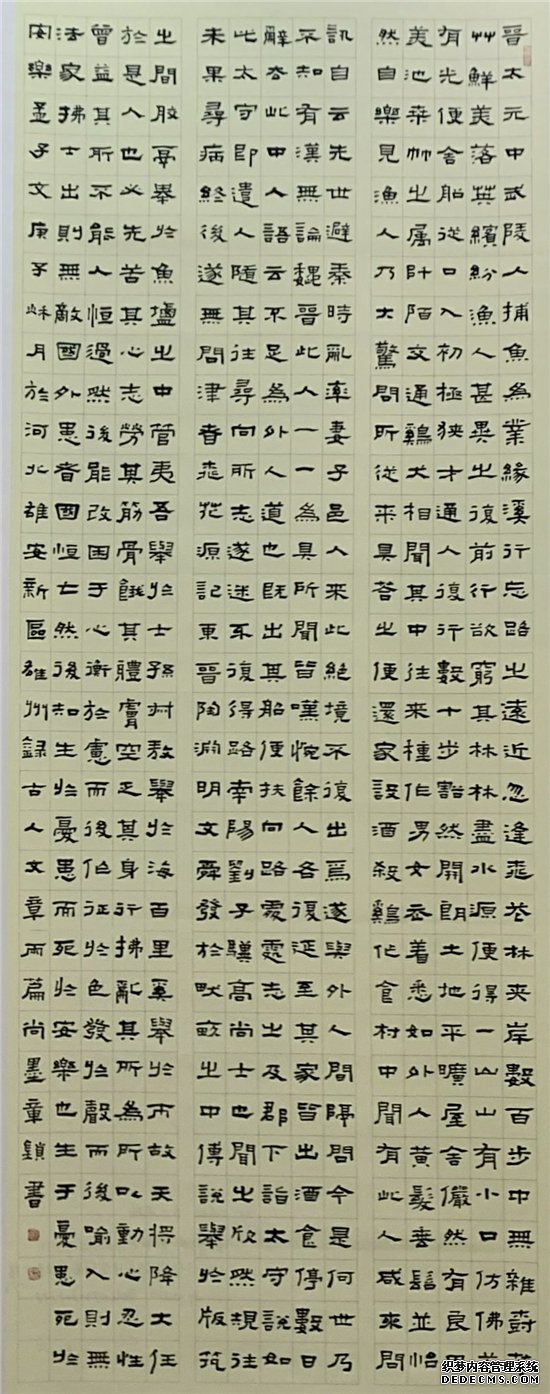 晉太元中武陵人捕魚為業緣溪行忘路之遠近忽逢桃花林夾岸數百步中無雜樹芳
艸鮮美落英繽紛漁人甚異之復前行欲窮其林林盡水源便得一山山有小口仿佛若
有光便舍船從口入初極狹才通人復行數十步豁然開朗土地平曠屋舍儼然有良田
美池桑竹之属阡陌交通鷄犬相聞其中往來種作男女衣着悉如外人黄髮垂髫並怡
然自樂見漁人乃大驚問所從來具答之便還家設酒殺鷄作食村中聞有此人咸來問
訊自云先世避秦時亂率妻子邑人來此絕境不復出焉遂與外人間隔問今是何世乃
不知有漢無論魏晉此人一一為具所聞皆嘆惋餘人各復延至其家皆出酒食停數日
辭去此中人語云不足為外人道也既出其船便扶向路處處志之及郡下詣太守說如
此太守即遣人隨其往尋向所志遂迷不復得路南陽劉子驥高尚士也聞之欣然規往
未果尋病終後遂無問津者桃花源記東晉陶淵明文舜發於畎畝之中傅說舉於版筑
之間膠鬲舉於魚鹽之中管夷吾舉於士孫叔敖舉於海百里奚舉於市故天將降大任
於是人也必先苦其心志勞其筋骨餓其體膚空乏其身行拂亂其所為所以動心忍性
曾益其所不能人恒過然後能改困于心衡於慮而後作征於色發於聲而後喻入則無
法家拂士出則無敵國外患者國恒亡然後知生於憂患而死於安樂也生于憂患死於
安樂孟子文庚子秋月於河北雄安新區雄州錄古人文章兩篇尚墨章書
织梦内容管理系统
DEDECMS.COM